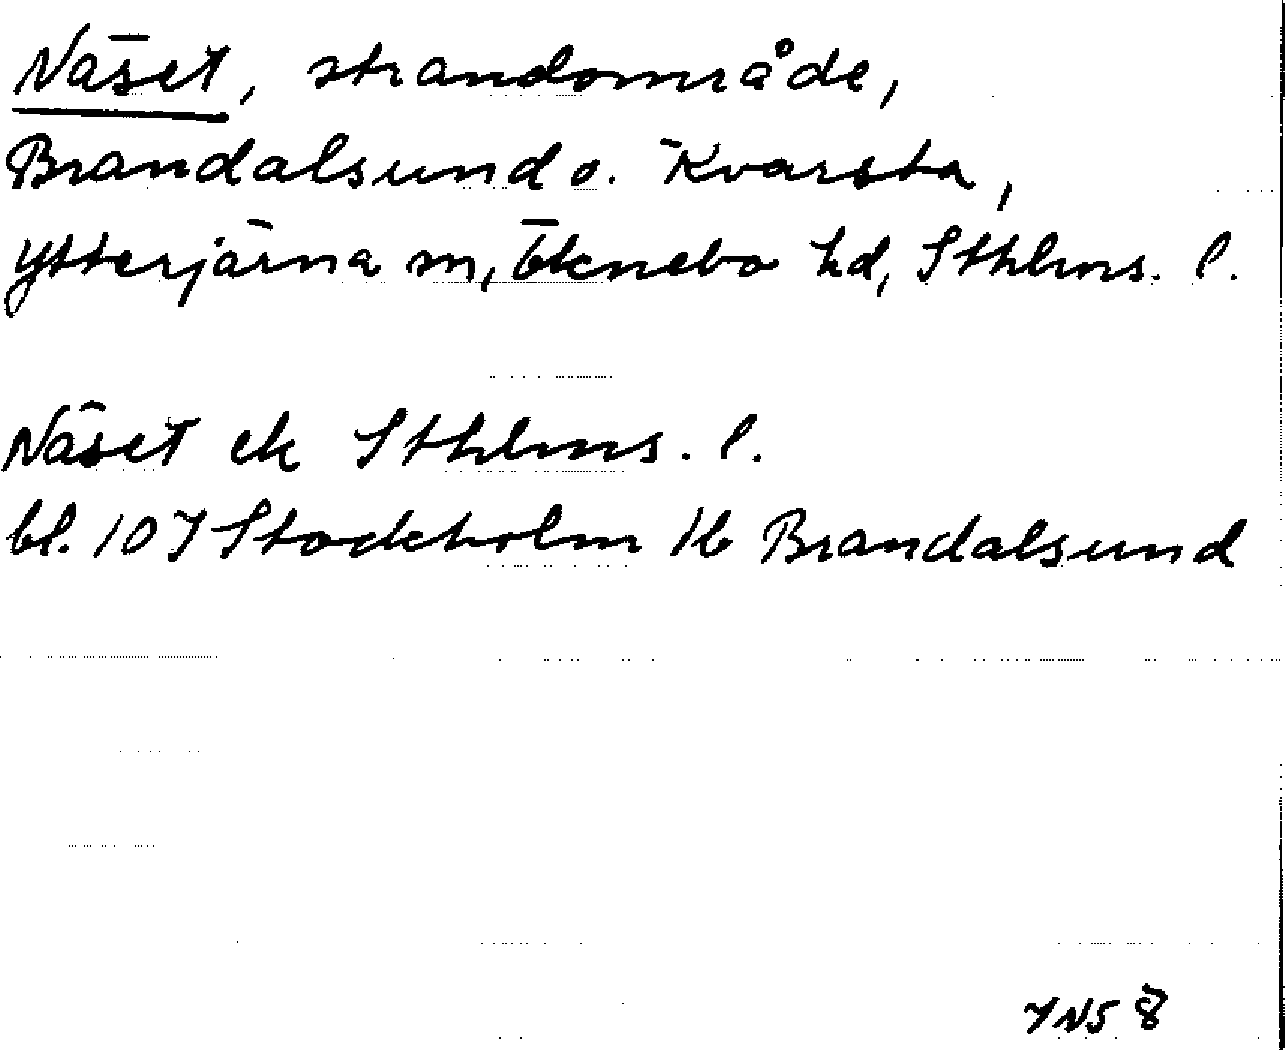 Näset, strandområde,
Brandalsund o. Kvarsta,
Ytterjärna sn, Öknebo hd, Sthlms. l.
Näset ek Sthlms. l.
bl. 10 I Stockholm 1b Brandalsund